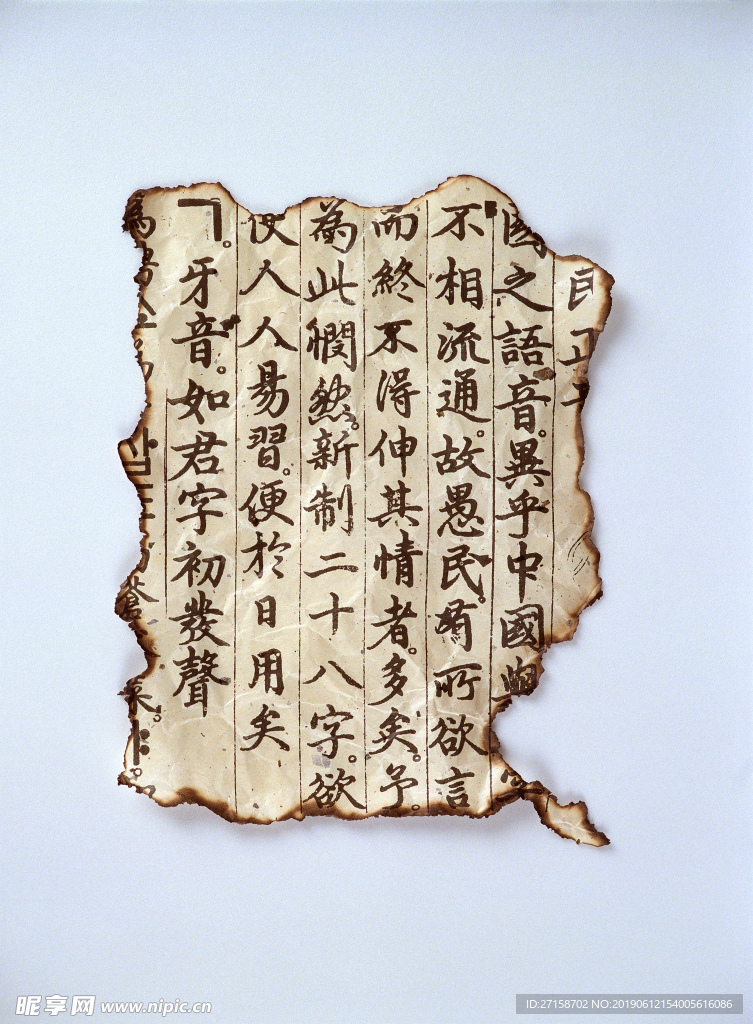 國之語音。異乎中國
不相流通。故愚民。有所欲言
而終不得伸其情者。多矣。予。
為此憫然。新制二十八字。欲
使人人易習。便於日用矣
ㄱ。牙音。如君字初發聲
昵享网 www.nipic.cn
ID:27158702 NO:20190612154005616086